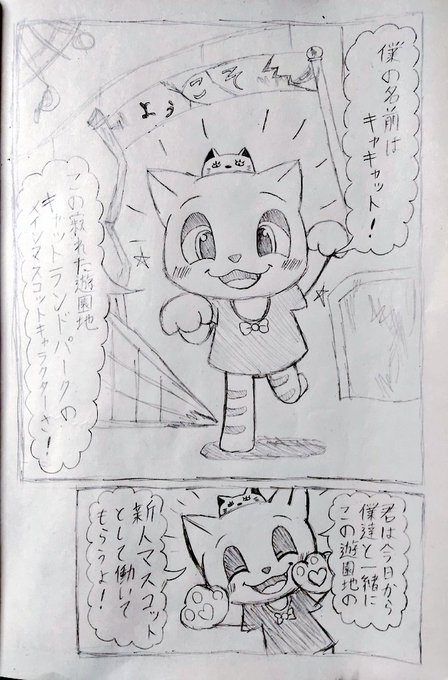 僕の名前は
キャキャット!
ようこそ
この寂れた遊園地
キャットランドパークの
メインマスコットキャラクターさ!
君は今日から
僕達と一緒に
この遊園地の
新人マスコット
として働いて
もらうよ!